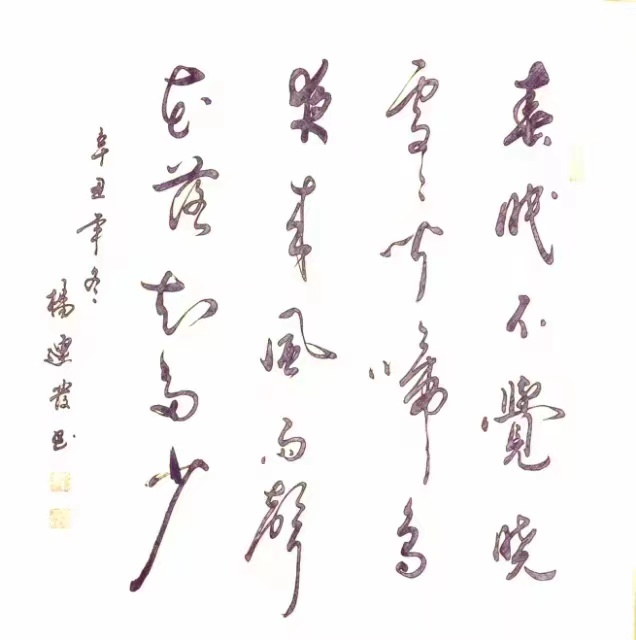 春眠不覺曉
處々聞啼鳥
夜来風雨聲
花落知多少
辛丑年冬
楊發书